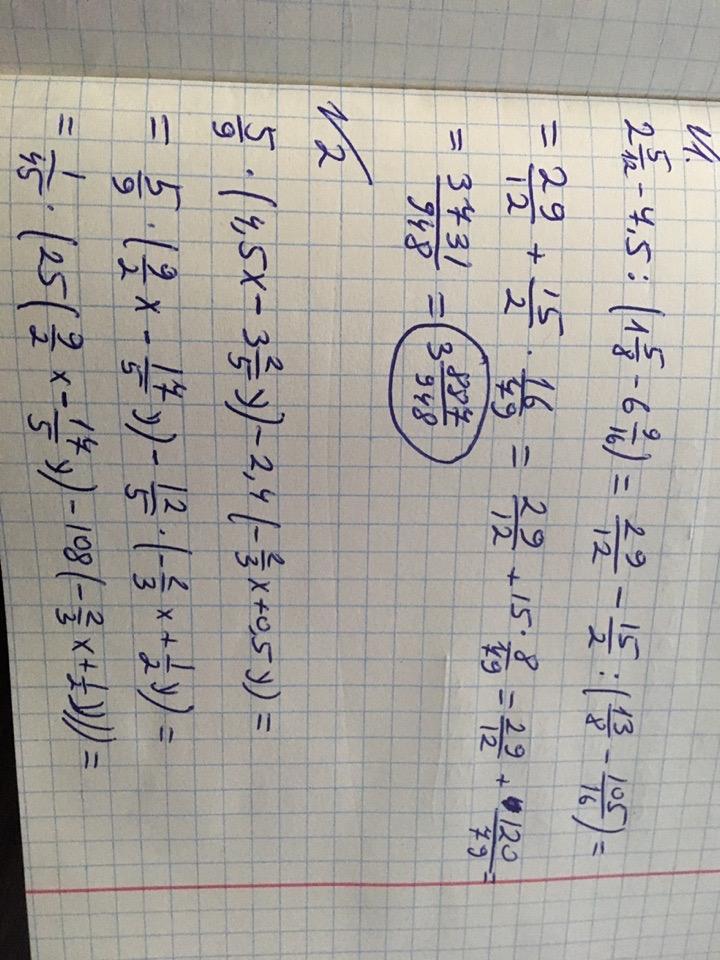 №1.
2 5/12 - 7,5 : (1 5/8 - 6 9/16) = 29/12 - 15/2 : (13/8 - 105/16) =
= 29/12 + 15/2 · 16/79 = 29/12 + 15 · 8/79 = 29/12 + 120/79 =
= 3731/948 = 3 887/948
№2
5/9 · (4,5x - 3 2/5 y) - 2,4 (-2/3 x + 0,5y) =
= 5/9 · (9/2 x - 17/5 y) - 12/5 · (-2/3 x + 1/2 y) =
= 1/45 · (25 (9/2 x - 17/5 y) - 108 (-2/3 x + 1/2 y))) =